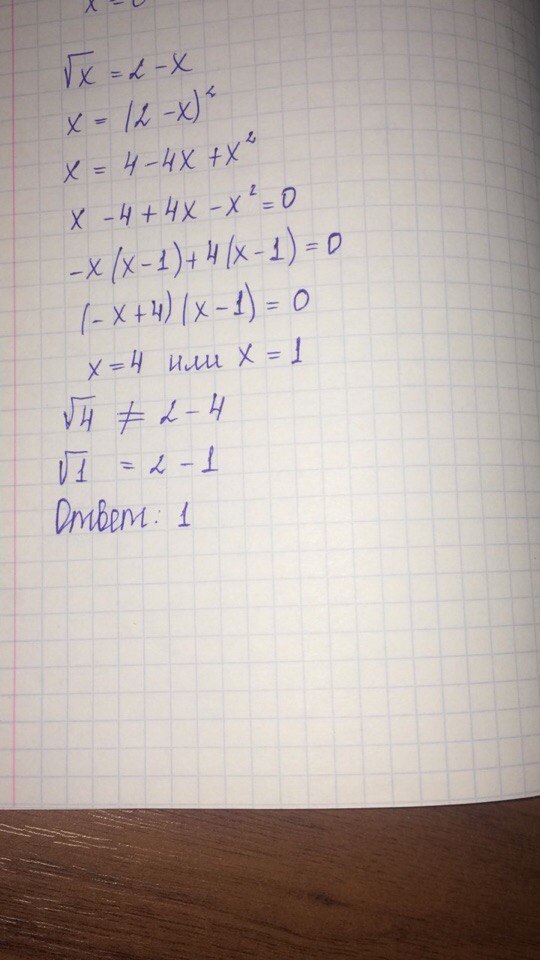 √x = 2 - x
x = (2 - x)²
x = 4 - 4x + x²
x - 4 + 4x - x² = 0
-x(x-1)+4(x-1)=0
(-x+4)(x-1)=0
x=4 или x=1
√4 ≠ 2-4
√1 = 2-1
Ответ: 1